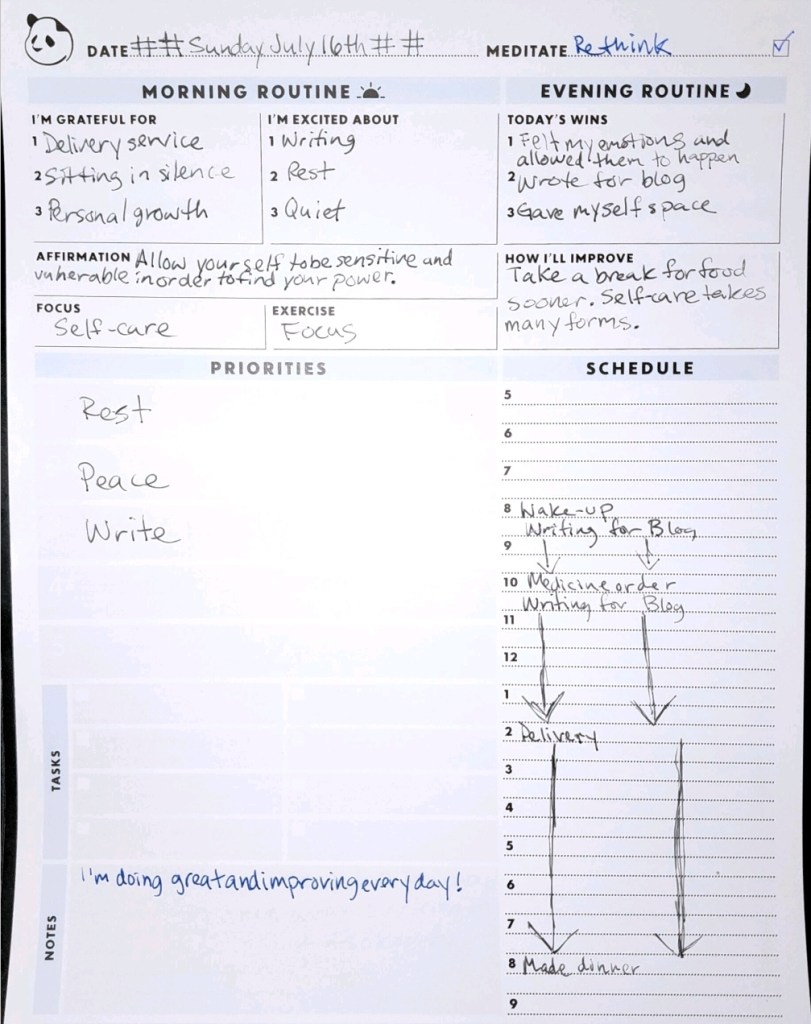 DATE ## Sunday July 16th ## MEDITATE Rethink
MORNING ROUTINE
I'M GRATEFUL FOR
1 Delivery service
2 Sitting in silence
3 Personal growth
I'M EXCITED ABOUT
1 Writing
2 Rest
3 Quiet
AFFIRMATION Allow yourself to be sensitive and
vulnerable in order to find your power.
FOCUS
Self-care
EXERCISE
Focus
EVENING ROUTINE
TODAY'S WINS
1 Felt my emotions and
allowed them to happen
2 Wrote for blog
3 Gave myself space
HOW I'LL IMPROVE
Take a break for food
sooner. Self-care takes
many forms.
PRIORITIES
Rest
Peace
Write
TASKS
NOTES
I'm doing great and improving every day!
SCHEDULE
5
6
7
8 Wake-up
Writing for Blog
9
10 Medicine order
Writing for Blog
11
12
1
2 Delivery
3
4
5
6
7
8 Made dinner
9